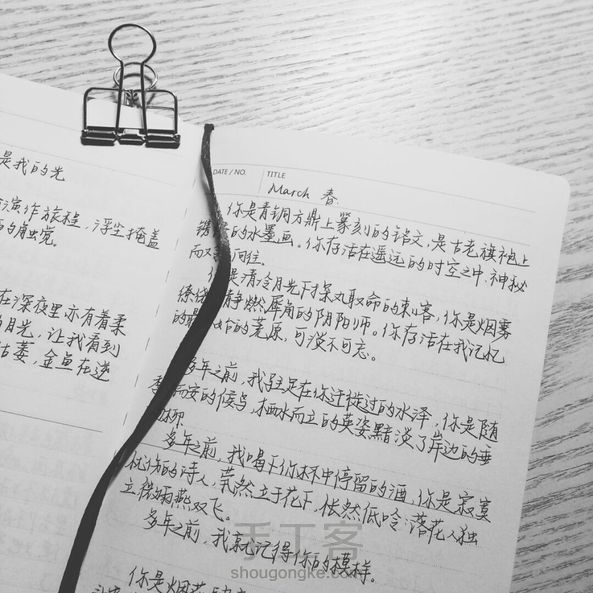 是我的光
演作旅程,浮尘掩盖
的触觉。
在深夜里亦有着柔
月光,让我看到
枯萎,金鱼在逆
DATE / NO.
TITLE
March 春.
你是青铜方鼎上篆刻的铭文,是古老旗袍上
的水墨画。你存活在遥远的时空之中,神秘
而又 向往
你是清冷月光下探丸取命的刺客,你是烟雾
缭绕 静燃犀角的阴阳师。你存活在我记忆
的最 的荒原,可没不可忘。
多年之前,我驻足在你迁徙过的水泽,你是随
季而安的候鸟,栖水而立的英姿黯淡了岸边的垂
柳
多年之前,我喝下你杯中停留的酒,你是寂寞
的诗人,茕然立于花下,怅然低吟:落花人独
立,微雨燕双飞。
多年之前,我就记得你的模样。
你是烟花
手工客
shougongke.com